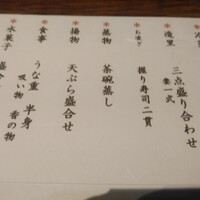 造里
三点盛り合わせ
妻一式
お凌ぎ
握り寿司二貫
蒸物
茶碗蒸し
揚物
天ぷら盛合せ
食事
うな重 半身
吸い物 香の物
水菓子
盛合